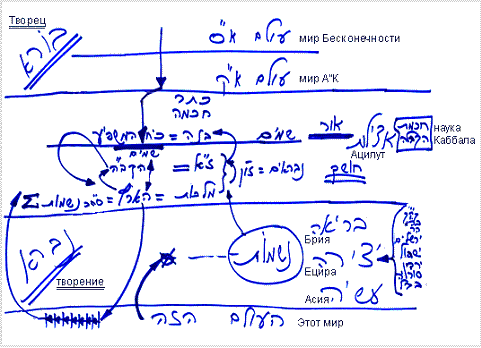 Творец
בורא
עולם א"ס мир Бесконечности
עולם א"ק мир А"К
כתר
חכמה
בינה = כח המשפיע
שמים
אור
אצילות
Ацилут
חכמת
הקבלה
наука
Каббала
שמים
הקב"ה
= ז"א
נבראים = זו"ן
חושך
Σ
נשמות
= הארץ = מלכות
נברא
творение
נשמות
בריאה
Брия
יצירה
Ецира
עשיה
Асия
העולם הזה
Этот мир